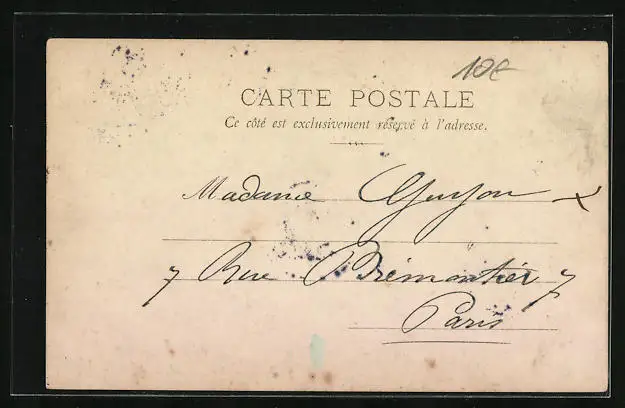 10€
CARTE POSTALE
Ce côté est exclusivement réservé à l'adresse.
Madame Guyon
7 Rue Brémontier 7
Paris